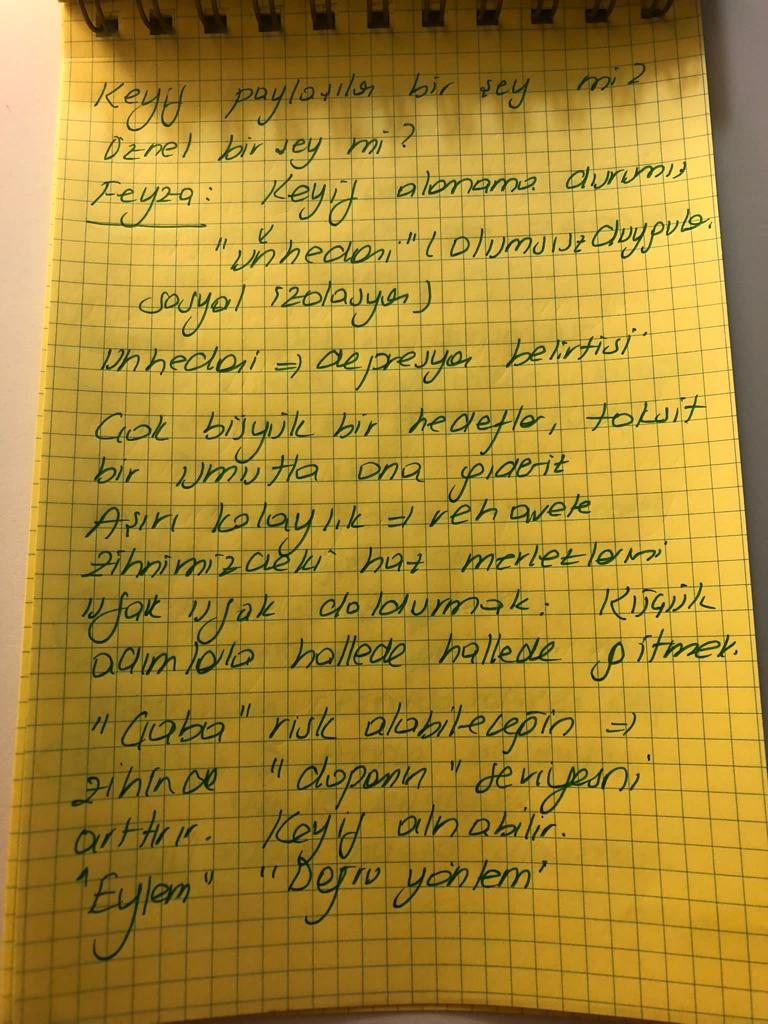 Keyif paylaşılan bir şey mi?
Öznel bir şey mi?
Feyza: Keyif alamama durumu,
"Anhedoni" (Olumsuz duygular,
sosyal izolasyon)
Anhedoni => depresyon belirtisi
Çok büyük bir hedefler,
bir umutla ona gideriz
Aşırı kolaylık => rehavete
Zihnimizdeki haz merkezlerini
ufak ufak doldurmak: Küçük
adımlarla hallede hallede gitmek.
"Çaba" risk alabileceğin =>
zihinde "dopamin" seviyesini
arttırır. Keyif alınabilir.
"Eylem" "Doğru yöntem"